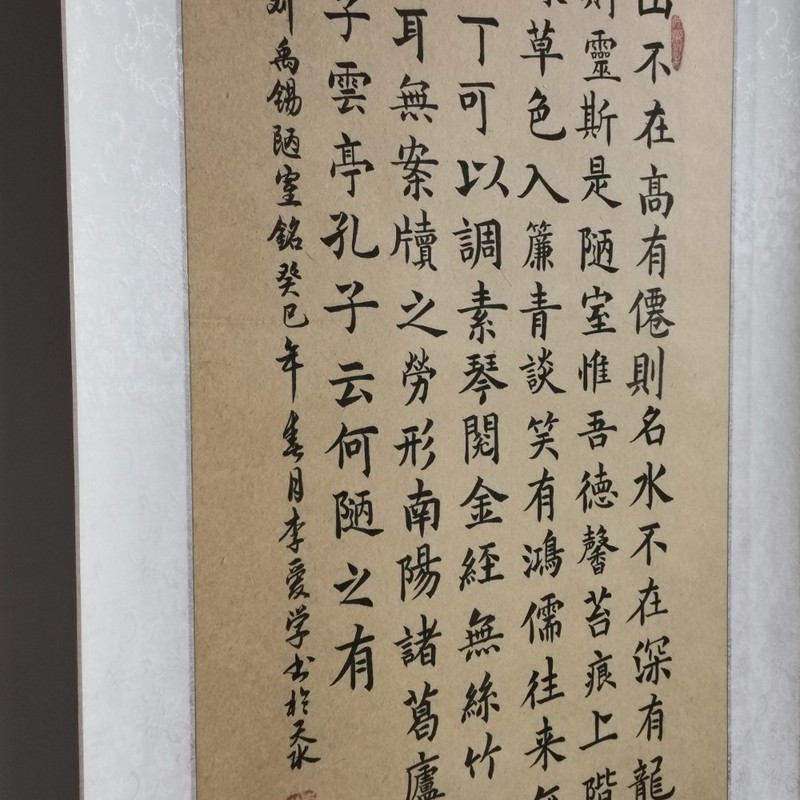 山不在高有僊則名水不在深有龍
則靈斯是陋室惟吾德馨苔痕上階
草色入簾青談笑有鴻儒往来無
丁可以調素琴閱金經無絲竹
耳無案牘之勞形南陽諸葛廬
子雲亭孔子云何陋之有
刘禹锡陋室銘癸巳年春月李愛学书於天水